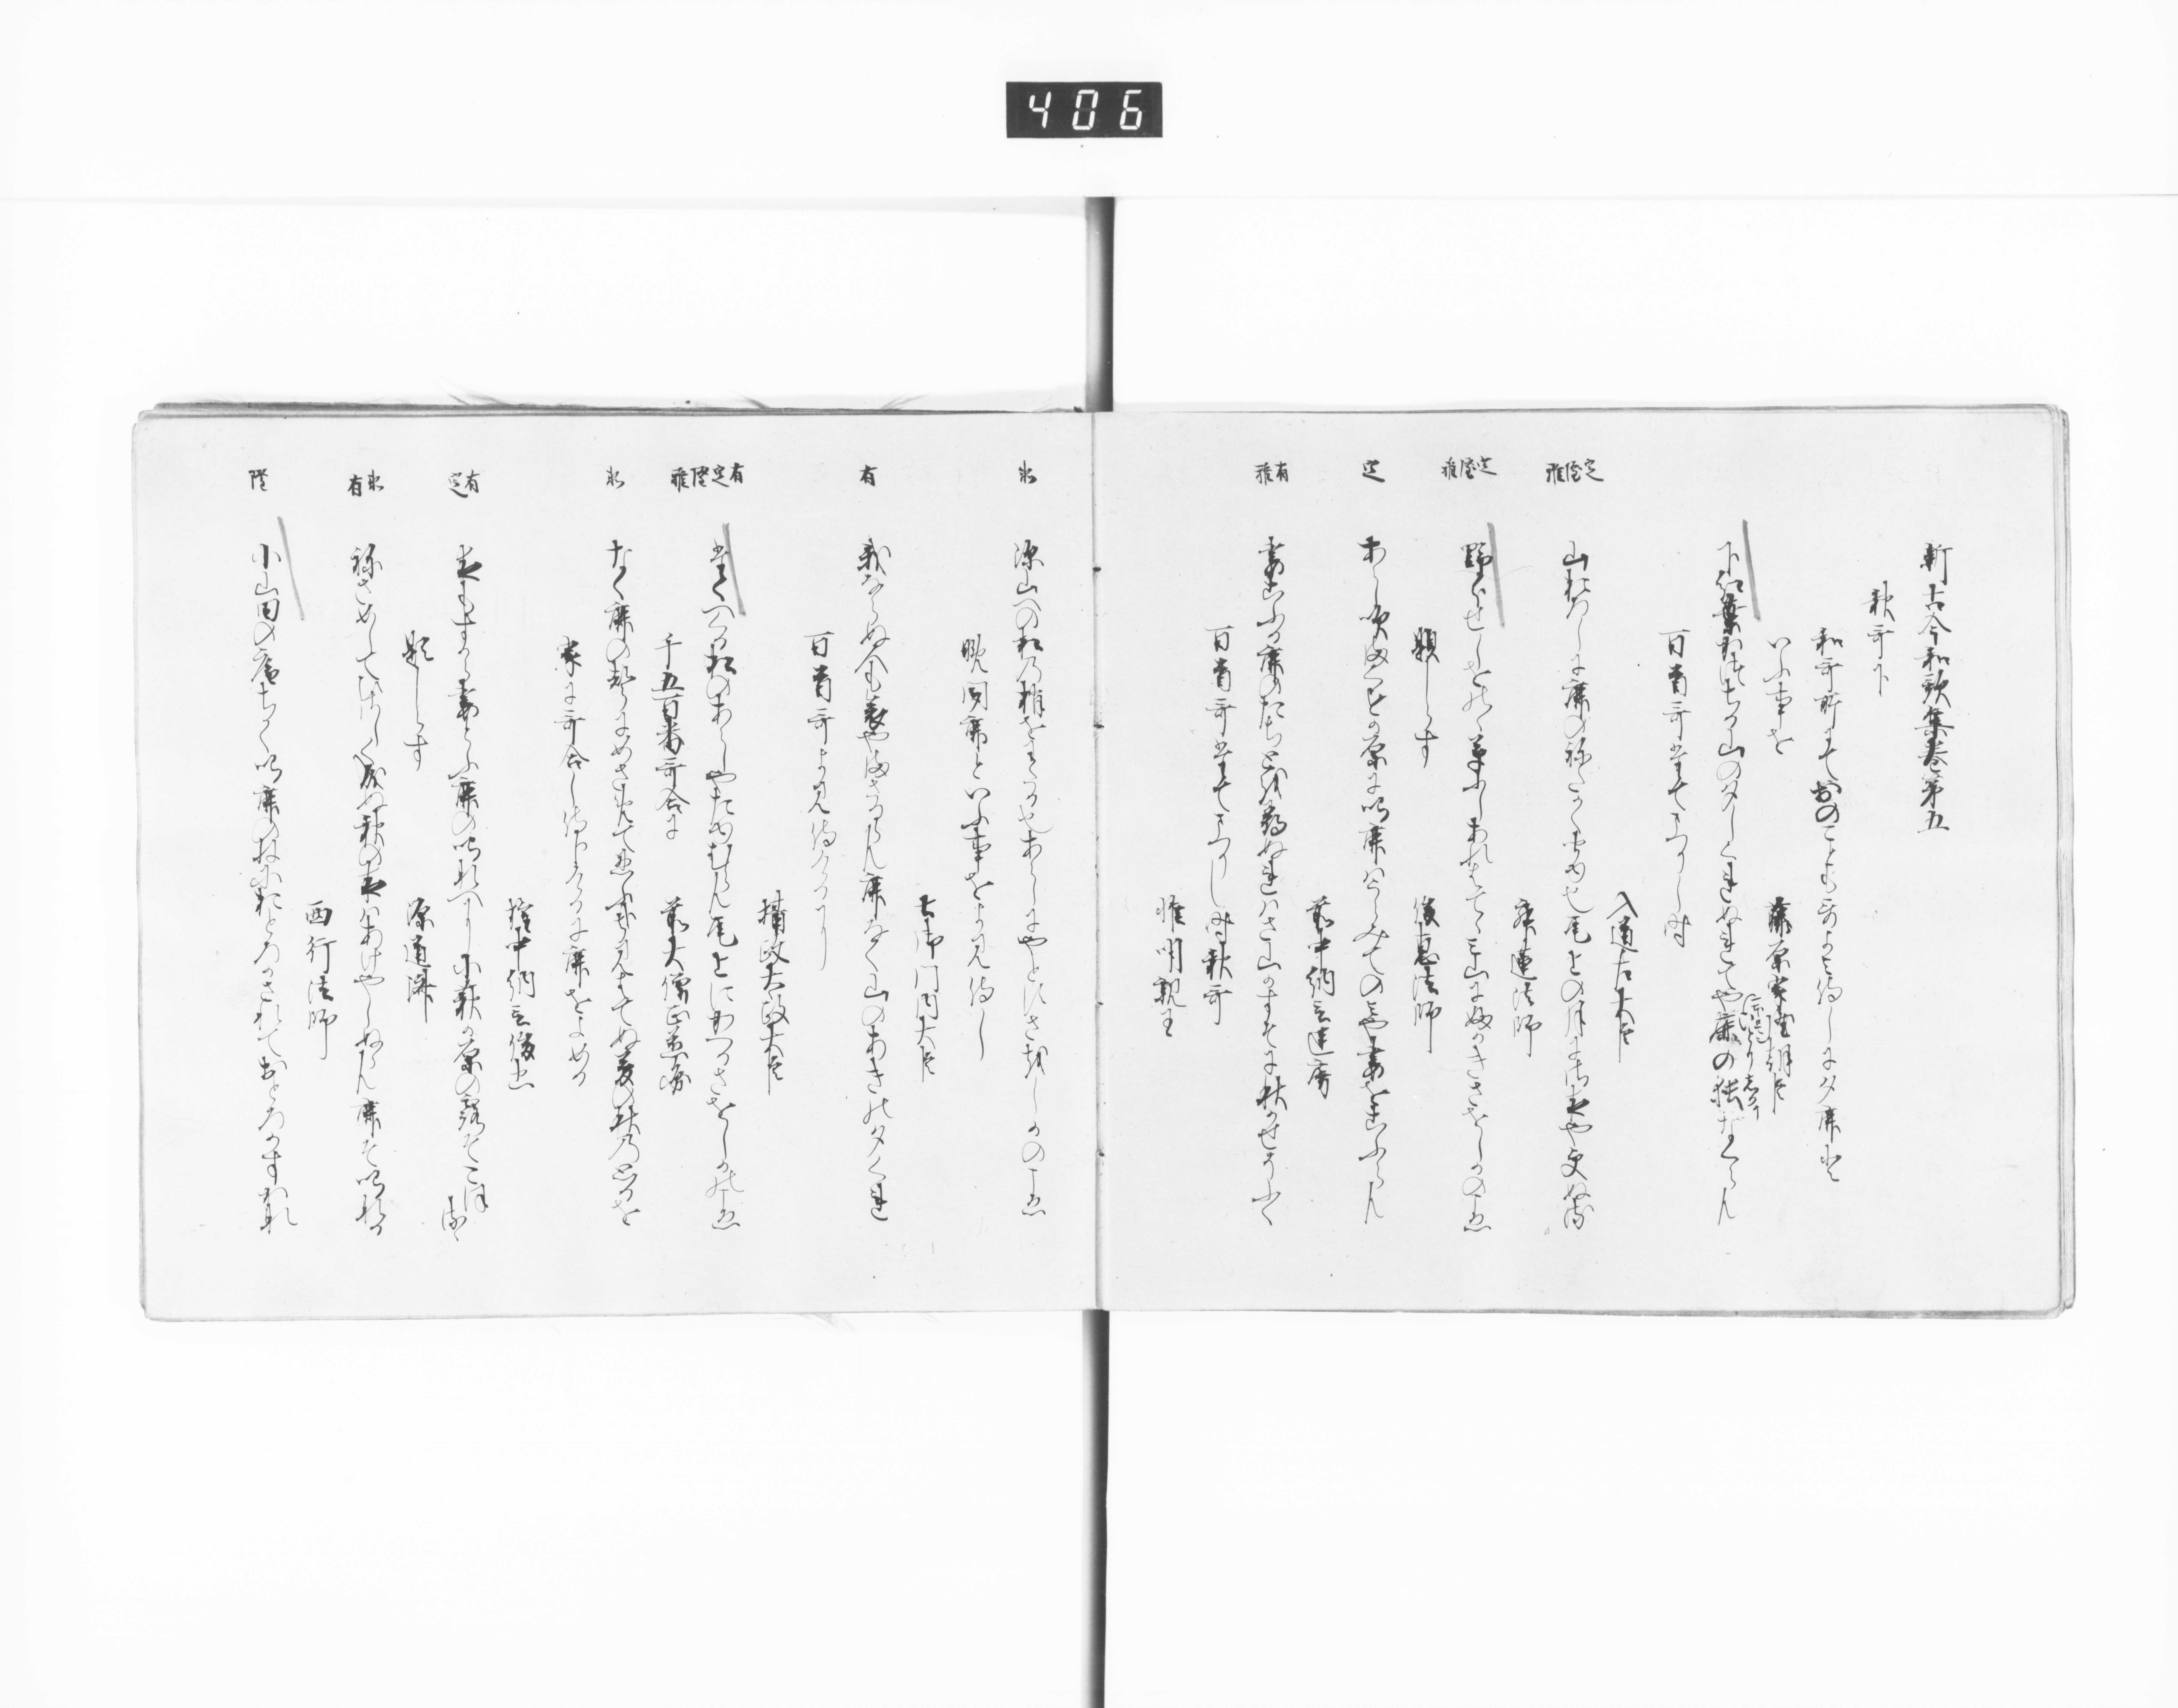 406
新古今和歌集巻第五
秋哥下
和哥所にてをのこども哥よみ侍しに夕鹿と
いふ事を
藤原家隆朝臣
下紅葉かつちる山の夕しくれぬれてや鹿の独なくらん
百首哥たてまつりし時
入道左大臣
定隆雅
山おろしに鹿のねたかく聞ゆ也尾上の月にさ夜や更ぬる
寂蓮法師
定隆雅
野分せしをのゝ草ふしあれはてゝみ山にふかきさをしかのこゑ
題しらす
俊恵法師
定
あらし吹まくすか原に鳴鹿はうらみてのみや妻をこふらん
前中納言匡房
有雅
妻こふる鹿のたちとを尋ぬれはさ山かすそに秋かせそふく
百首哥たてまつりし時秋哥
惟明親王
衣
深山への松の梢をわたる也あらしにやとすさをしかのこゑ
晩聞鹿といふ事をよみ侍し
土御門内大臣
有
我ならぬ人も哀やまさるらん鹿なく山のあきの夕くれ
百首哥よみ侍けるに
摂政太政大臣
有定隆雅
たくへくる松のあらしやたゆむらん尾上にかへるさをしかのこゑ
千五百番哥合に
前大僧正慈円
衣
なく鹿の声にめさめて忍ふ哉見はてぬ夢の秋の思を
家に哥合し侍けるに鹿をよめる
権中納言俊忠
有定
夜もすから妻とふ鹿の鳴なへに小萩か原の露そこほるゝ
題しらす
源道済
衣有
ねさめして久しく成ぬ秋の夜はあけやしぬらん鹿そ鳴なる
西行法師
隆
小山田の庵ちかく鳴鹿の音におとろかされておとろかす哉